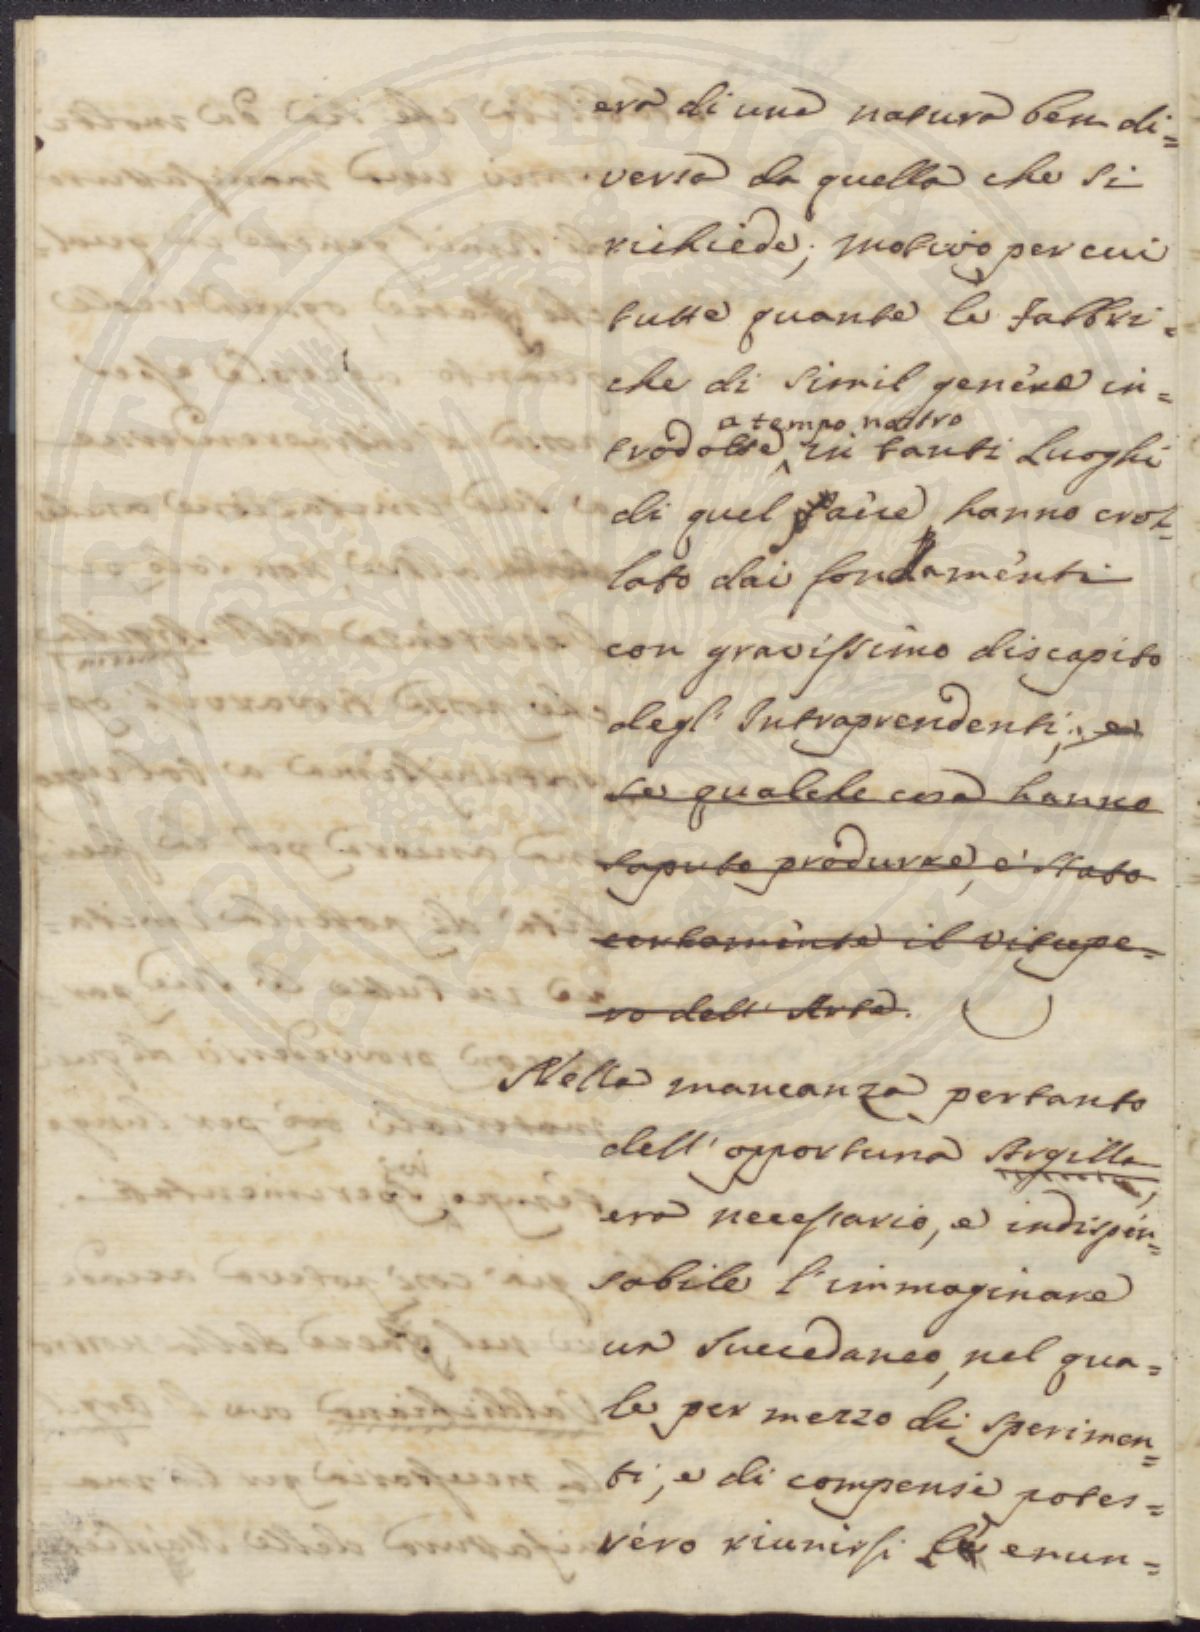 era di una natura ben di=
versa da quella che si
richiede; motivo per cui
tutte quante le Fabbri=
che di simil genere in=
a tempo nostro
trodotte in tanti Luoghi
di quel Paese, hanno crol=
lato dai fondamenti
con gravissimo discapito
degl' Intraprendenti; e
se qualche cosa hanno
saputo produrre, è stato
certamente il vitupe=
ro dell' Arte.
Nella mancanza pertanto
dell' opportuna Argilla,
era necessario, e indispen=
sabile l'immaginare
un succedaneo, nel qua=
le per mezzo di sperimen=
ti, e di compensi potes=
sero riunirsi le enun=